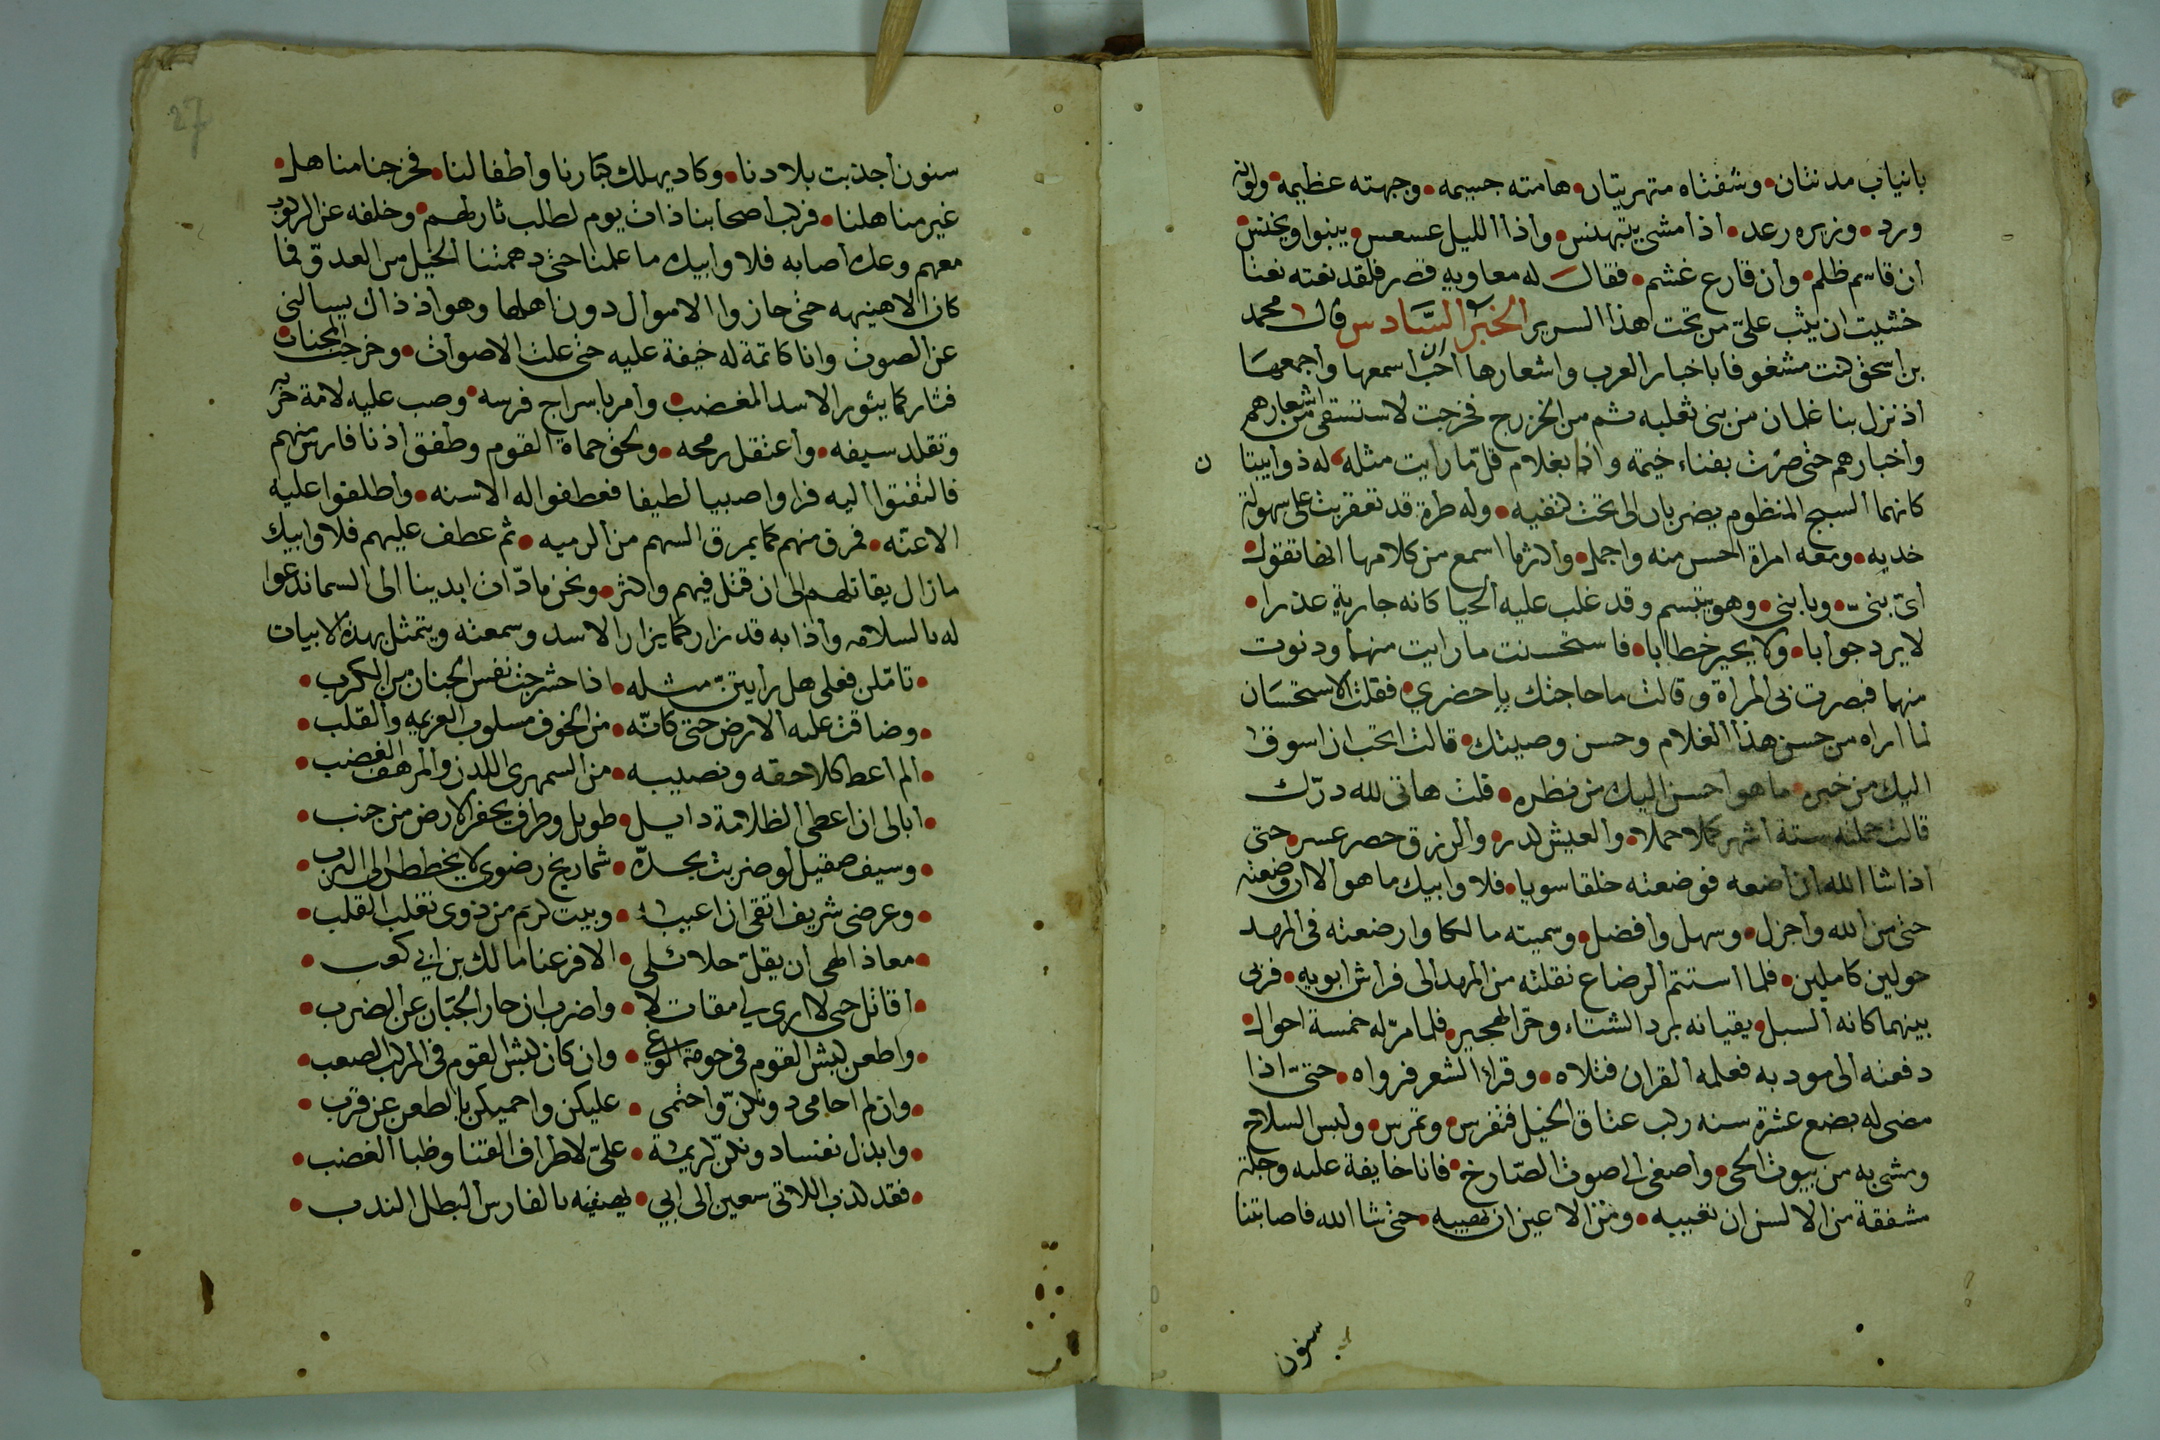 بانياب مدنثان وشفتاه متهريتان هامته جسيمه وجبهته عظيمه ولونه
ورد وزيره رعد اذا مشى يتبهنس واذا الليل عسعس ينبوا ويخنس
ان قاسم ظلم وان قارع غشم فقال له معاويه قصر فلقد نعته نعتا
خشيت ان يثب على من تحت هذا السرير الخبر السادس قال محمد
بن اسحق كنت مشغوفا باخبار العرب واشعارها احب ان اسمعها واجمعها
اذ نزل بنا غلمان من بنى ثعلبه ثم من الخزرج فخرجت لاستسقى من اشعارهم
واخبارهم حتى صرت بفناء خيمه واذا بغلام قل ما رايت مثله له ذوابيتا ن
كانهما السبج المنظوم يضربان الى تحت كتفيه وله طرة قد تعقربت على سهولة
خديه ومعه امراة احسن منه واجمل واكثر ما اسمع من كلامها انها تقول
اى بنى ويا بنى وهو يتبسم وقد غلب عليه الحيا كانه جارية عذرا
لا يرد جوابا ولا يحير خطابا فاستحسنت ما رايت منهما ودنوت
منهما فبصرت بى المراة وقالت ما حاجتك يا حضري فقلت الاستحسان
لما اراه من حسن هذا الغلام وحسن وصيتك قالت اتحب ان اسوق
اليك من خبره ما هو احسن اليك من نظره قلت هاتى لله درك
قالت حملته ستة اشهر كملا حملا والعيش كدر والرزق حصر عسر حتى
اذا شا الله ان اضعه فوضعته خلقا سويا فلا وابيك ما هو الا ان وضعته
حتى من الله واجزل وسهل وافضل وسميته مالكا وارضعته فى المهد
حولين كاملين فلما استتم الرضاع نقلته من المهد الى فراش ابويه فربى
بينهما كانه السبل يقيانه برد الشتاء وحر الهجير فلما مر له خمسة احوال
دفعته الى مودبه فعلمه القران فتلاه وقراء الشعر فرواه حتى اذا
مضى له بضع عشرة سنه ركب عتاق الخيل فتفرس وتمرس ولبس السلاح
ومشى به من بيوت الحى واصغى الى صوت الصارخ فانا خايفة عليه وجلة
مشفقة من الالسن ان تعيبه ومن الاعين ان تصيبه حتى شا الله فاصابتنا
سنون
27
سنون اجذبت بلادنا وكاد يهلك كبارنا واطفالنا فخرجنا منا هل
غير منا هلنا فركب اصحابنا ذات يوم لطلب ثار لهم وخلفه عن الركوب
معهم وعك اصابه فلا وابيك ما علمنا حتى دهمتنا الخيل من العدو فما
كان الا هنيهه حتى حازوا الاموال دون اهلها وهو اذ ذاك يسالنى
عن الصوت وانا كاتمة له خيفة عليه حتى علت الاصوات وخرجت المخبات
فثار كما يثور الاسد المغضب وامر باسراج فرسه وصب عليه لامة حربه
وتقلد سيفه واعتقل رمحه ولحق حماة القوم وطفق اذنا فارس منهم
فالتفتوا اليه فراوا صبيا لطيفا فعطفوا له الاسنه واطلقوا عليه
الاعنه فمرق منهم كما يمرق السهم من الرميه ثم عطف عليهم فلا وابيك
ما زال يقاتلهم الى ان قتل فيهم واكثر ونحن مادات ايدينا الى السما ندعوا
له بالسلامه واذا به قد زار كما يزار الاسد وسمعته ويتمثل بهذه الابيات
تاملن فعلى هل رايتن مثله اذا حشرجت نفس الجبان من الكرب
وضاقت عليه الارض حتى كانه من الخوف مسلوب العزيمه والقلب
الم اعط كلا حقه ونصيبه من السمهرى اللدن والمرهف الغضب
ابا لى ان اعطى الظلامة دابل طويل وطرف يحفر الارض من جنب
وسيف صقيل لو ضربت بحده شماريخ رضوى لا يخططن الى الترب
وعرضى شريف اتقى ان اعيبه وبيت كريم من ذوى تغلب القلب
معاذ الهى ان يقل حلائلى الا فر عنا مالك بن ابى كعب
اقاتل حتى لا ارى لى مقاتلا واضرب ان حار الجبان عن الضرب
واطعن كبش القوم فى حومة الوغى وان كان كبش القوم فى المركب الصعب
وان لم احامى دونكن واحتمى عليكن واحميكن بالطعن عن قرب
وابذل نفسا دونكن كريمة على لاطراف القنا وظبا الغضب
فقد كذب اللاتى سعين الى ابي يصفنه بالفارس البطل الندب